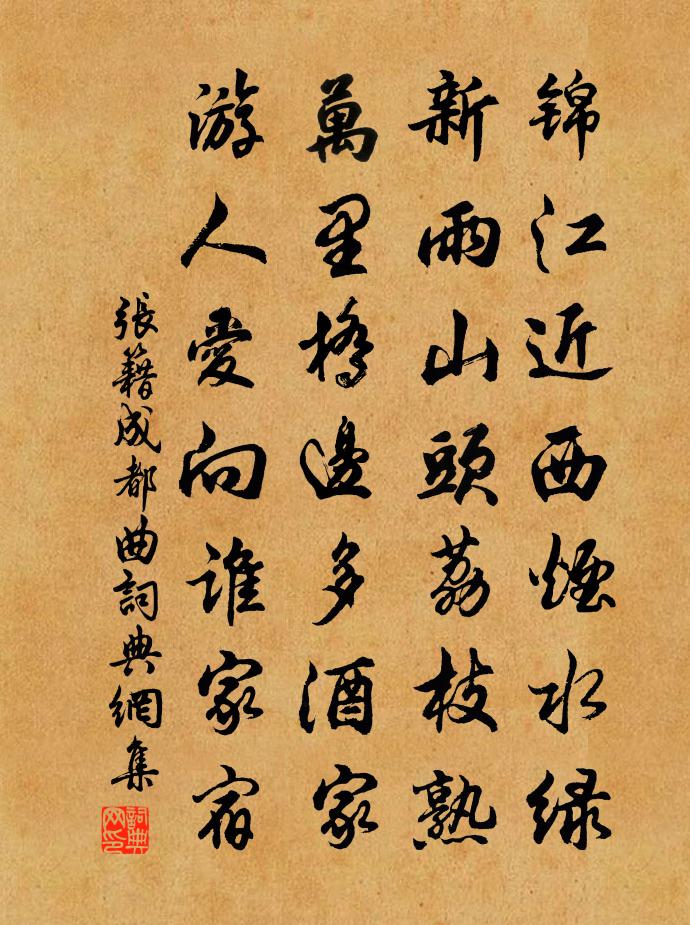 锦江近西煙水绿
新雨山頭荔枝熟
萬里橋邊多酒家
游人愛向誰家宿
張籍成都曲詞典網集
詞典网印